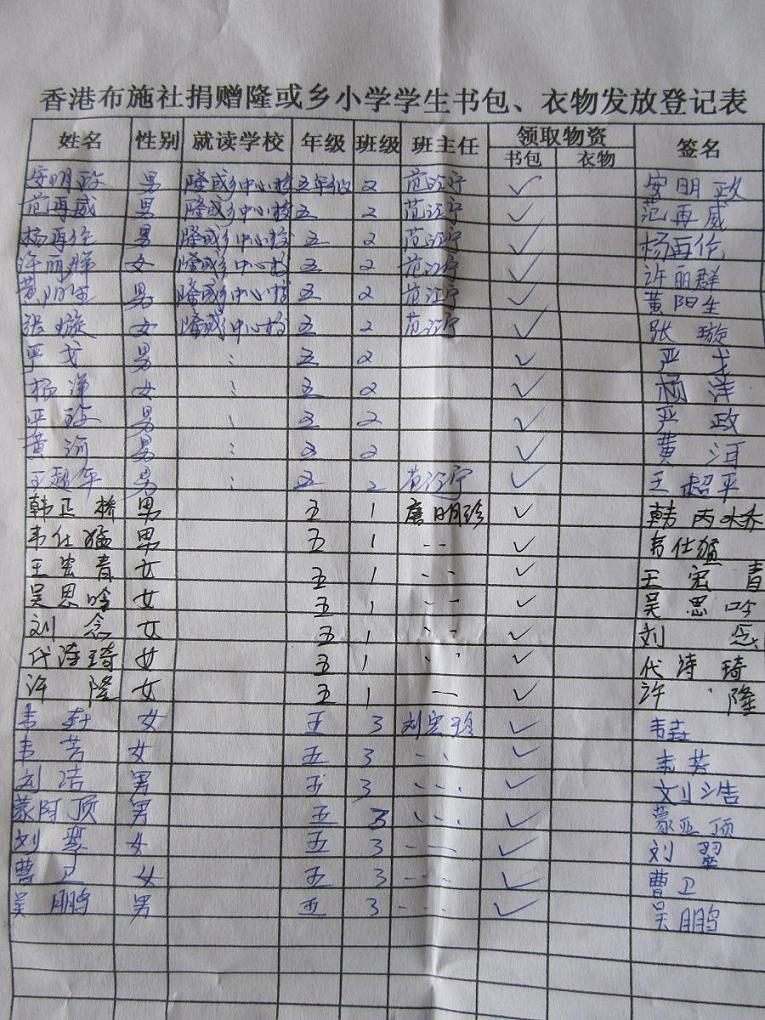 香港布施社捐赠隆或乡小学学生书包、衣物发放登记表
姓名 性别 就读学校 年级 班级 班主任 领取物资 签名
书包 衣物
安明政 男 隆或乡中心校 五年级 2 范江宁 ✓ 安明政
范再威 男 隆或乡中心校 五 2 范江宁 ✓ 范再威
杨再伦 男 隆或乡中心校 五 2 范江宁 ✓ 杨再伦
许丽群 女 隆或乡中心校 五 2 范江宁 ✓ 许丽群
黄阳生 男 隆或乡中心校 五 2 范江宁 ✓ 黄阳生
张璇 女 隆或乡中心校 五 2 范江宁 ✓ 张璇
严戈 男 ⋮ 五 2 ✓ 严戈
杨洋 女 ⋮ 五 2 ✓ 杨洋
严政 男 ⋮ 五 2 ✓ 严政
黄河 男 ⋮ 五 2 ✓ 黄河
王超平 男 ⋮ 五 2 范江宁 ✓ 王超平
韩正桥 男 五 1 唐明珍 ✓ 韩丙桥
韦仕猛 男 五 1 -- ✓ 韦仕猛
王宏青 女 五 1 -- ✓ 王宏青
吴思吟 女 五 1 -- ✓ 吴思吟
刘念 女 五 1 -- ✓ 刘念
代涛琦 女 五 1 -- ✓ 代涛琦
许隆 女 五 1 -- ✓ 许隆
韦 女 五 3 刘宏珍 ✓ 韦
韦芳 女 五 3 --- ✓ 韦芳
刘洁 男 五 3 --- ✓ 刘浩
蒙阿顶 男 五 3 --- ✓ 蒙亚顶
刘翠 女 五 3 --- ✓ 刘翠
曹卫 女 五 3 --- ✓ 曹卫
吴鹏 男 五 3 --- ✓ 吴鹏